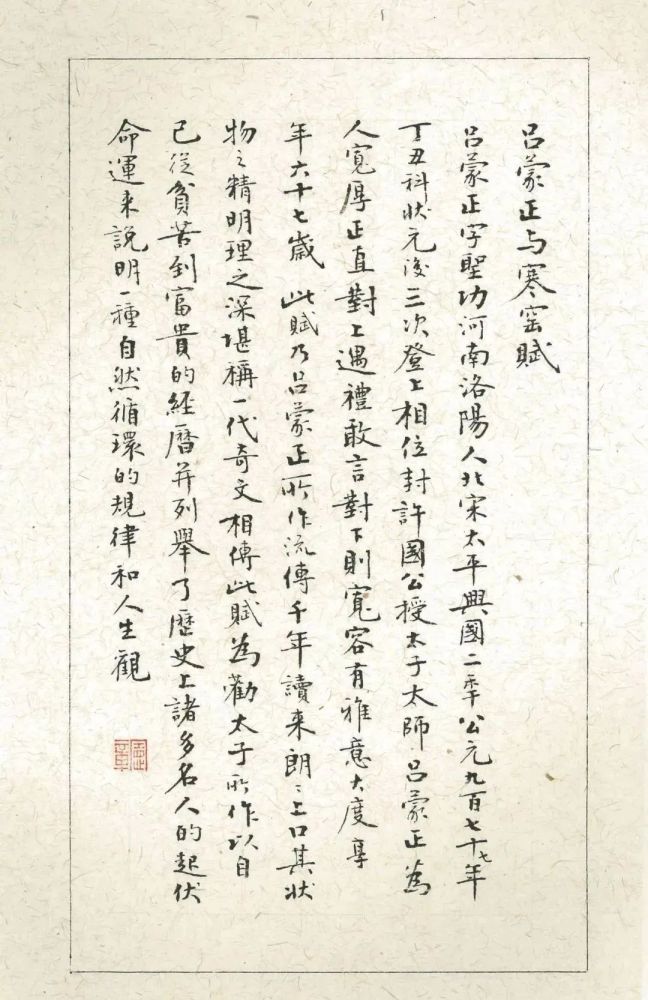 吕蒙正与寒窑賦
吕蒙正字聖功河南洛陽人北宋太平興國二年公元九百七十七年
丁丑科狀元後三次登上相位封許國公授太子太師吕蒙正為
人寬厚正直對上遇禮敢言對下則寬容有雅意大度享
年六十七歲 此賦乃吕蒙正所作流傳千年讀来朗〻上口其狀
物之精明理之深堪稱一代奇文相傳此賦為勸太子所作以自
己從貧苦到富貴的經曆并列舉了歷史上諸多名人的起伏
命運来説明一種自然循環的規律和人生觀